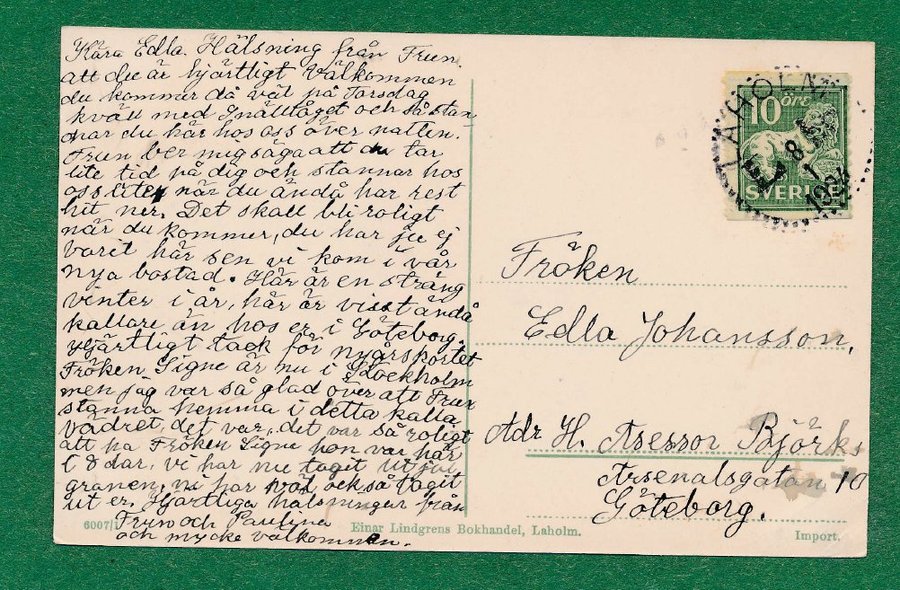 Kära Edla. Hälsning från Frun.
att du är hjärtligt välkommen
du kommer då väl på Torsdag
kväll med Snälltåget och så stan-
nar du här hos oss över natten.
Frun ber mig säga att du tar
lite tid på dig och stannar hos
oss lite när du ändå har rest
hit ner. Det skall bli roligt
när du kommer, du har ju ej
varit här sen vi kom i vår
nya bostad. Här är en sträng
vinter i år, här är visst ändå
kallare än hos er i Göteborg.
Hjärtligt tack för nyårskortet
Fröken Signe är nu i Stockholm
men jag var så glad över att Frun
stanna hemma i detta kalla
vädret, det var, det var så roligt
att ha Fröken Signe hon var här
i 8 dar, vi har nu taget ut jul
granen, ni har väl också tagit
ut er. Hjärtliga hälsningar från
Frun och Paulina
och mycke välkommen.
10 ÖRE
SVERIGE
LAHOLM
8
1
1924
Fröken
Edla Johansson,
Adr H. Asessor Björks
Arsenalsgatan 10
Göteborg.
6007/1
Einar Lindgrens Bokhandel, Laholm.
Import.